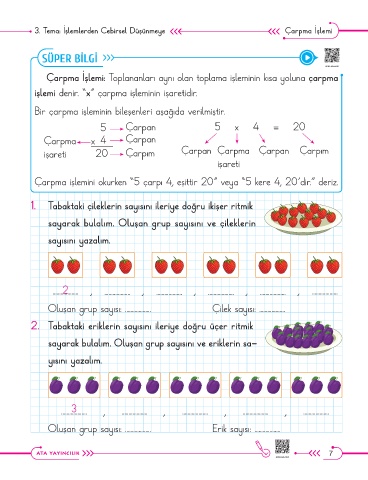 3. Tema: İşlemlerden Cebirsel Düşünmeye
Çarpma İşlemi
SÜPER BİLGİ
Çarpma İşlemi: Toplananları aynı olan toplama işleminin kısa yoluna çarpma
işlemi denir. "x" çarpma işleminin işaretidir.
Bir çarpma işleminin bileşenleri aşağıda verilmiştir.
5 Çarpan
Çarpma x 4 Çarpan
işareti 20 Çarpım
5 x 4 = 20
Çarpan Çarpma Çarpan Çarpım
işareti
Çarpma işlemini okurken "5 çarpı 4, eşittir 20" veya "5 kere 4, 20'dir." deriz.
1. Tabaktaki çileklerin sayısını ileriye doğru ikişer ritmik
sayarak bulalım. Oluşan grup sayısını ve çileklerin
sayısını yazalım.
2 , , , , ,
Oluşan grup sayısı: Çilek sayısı:
2. Tabaktaki eriklerin sayısını ileriye doğru üçer ritmik
sayarak bulalım. Oluşan grup sayısını ve eriklerin sa-
yısını yazalım.
3 , , , ,
Oluşan grup sayısı: Erik sayısı:
ATA YAYINCILIK
7